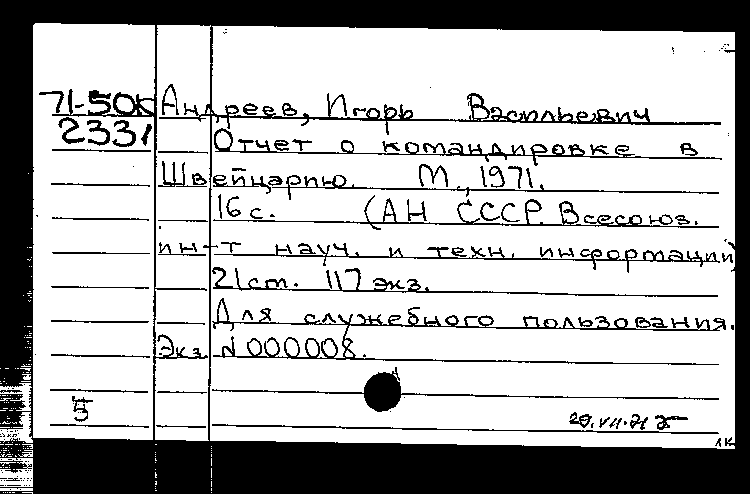 71-50К Андреев, Игорь Васильевич
2331 Отчет о командировке в
Швейцарию. М., 1971.
16 с. (АН СССР. Всесоюз.
ин-т науч. и техн. информации)
21 ст. 117 экз.
Для служебного пользования.
Экз. N 000008.
5